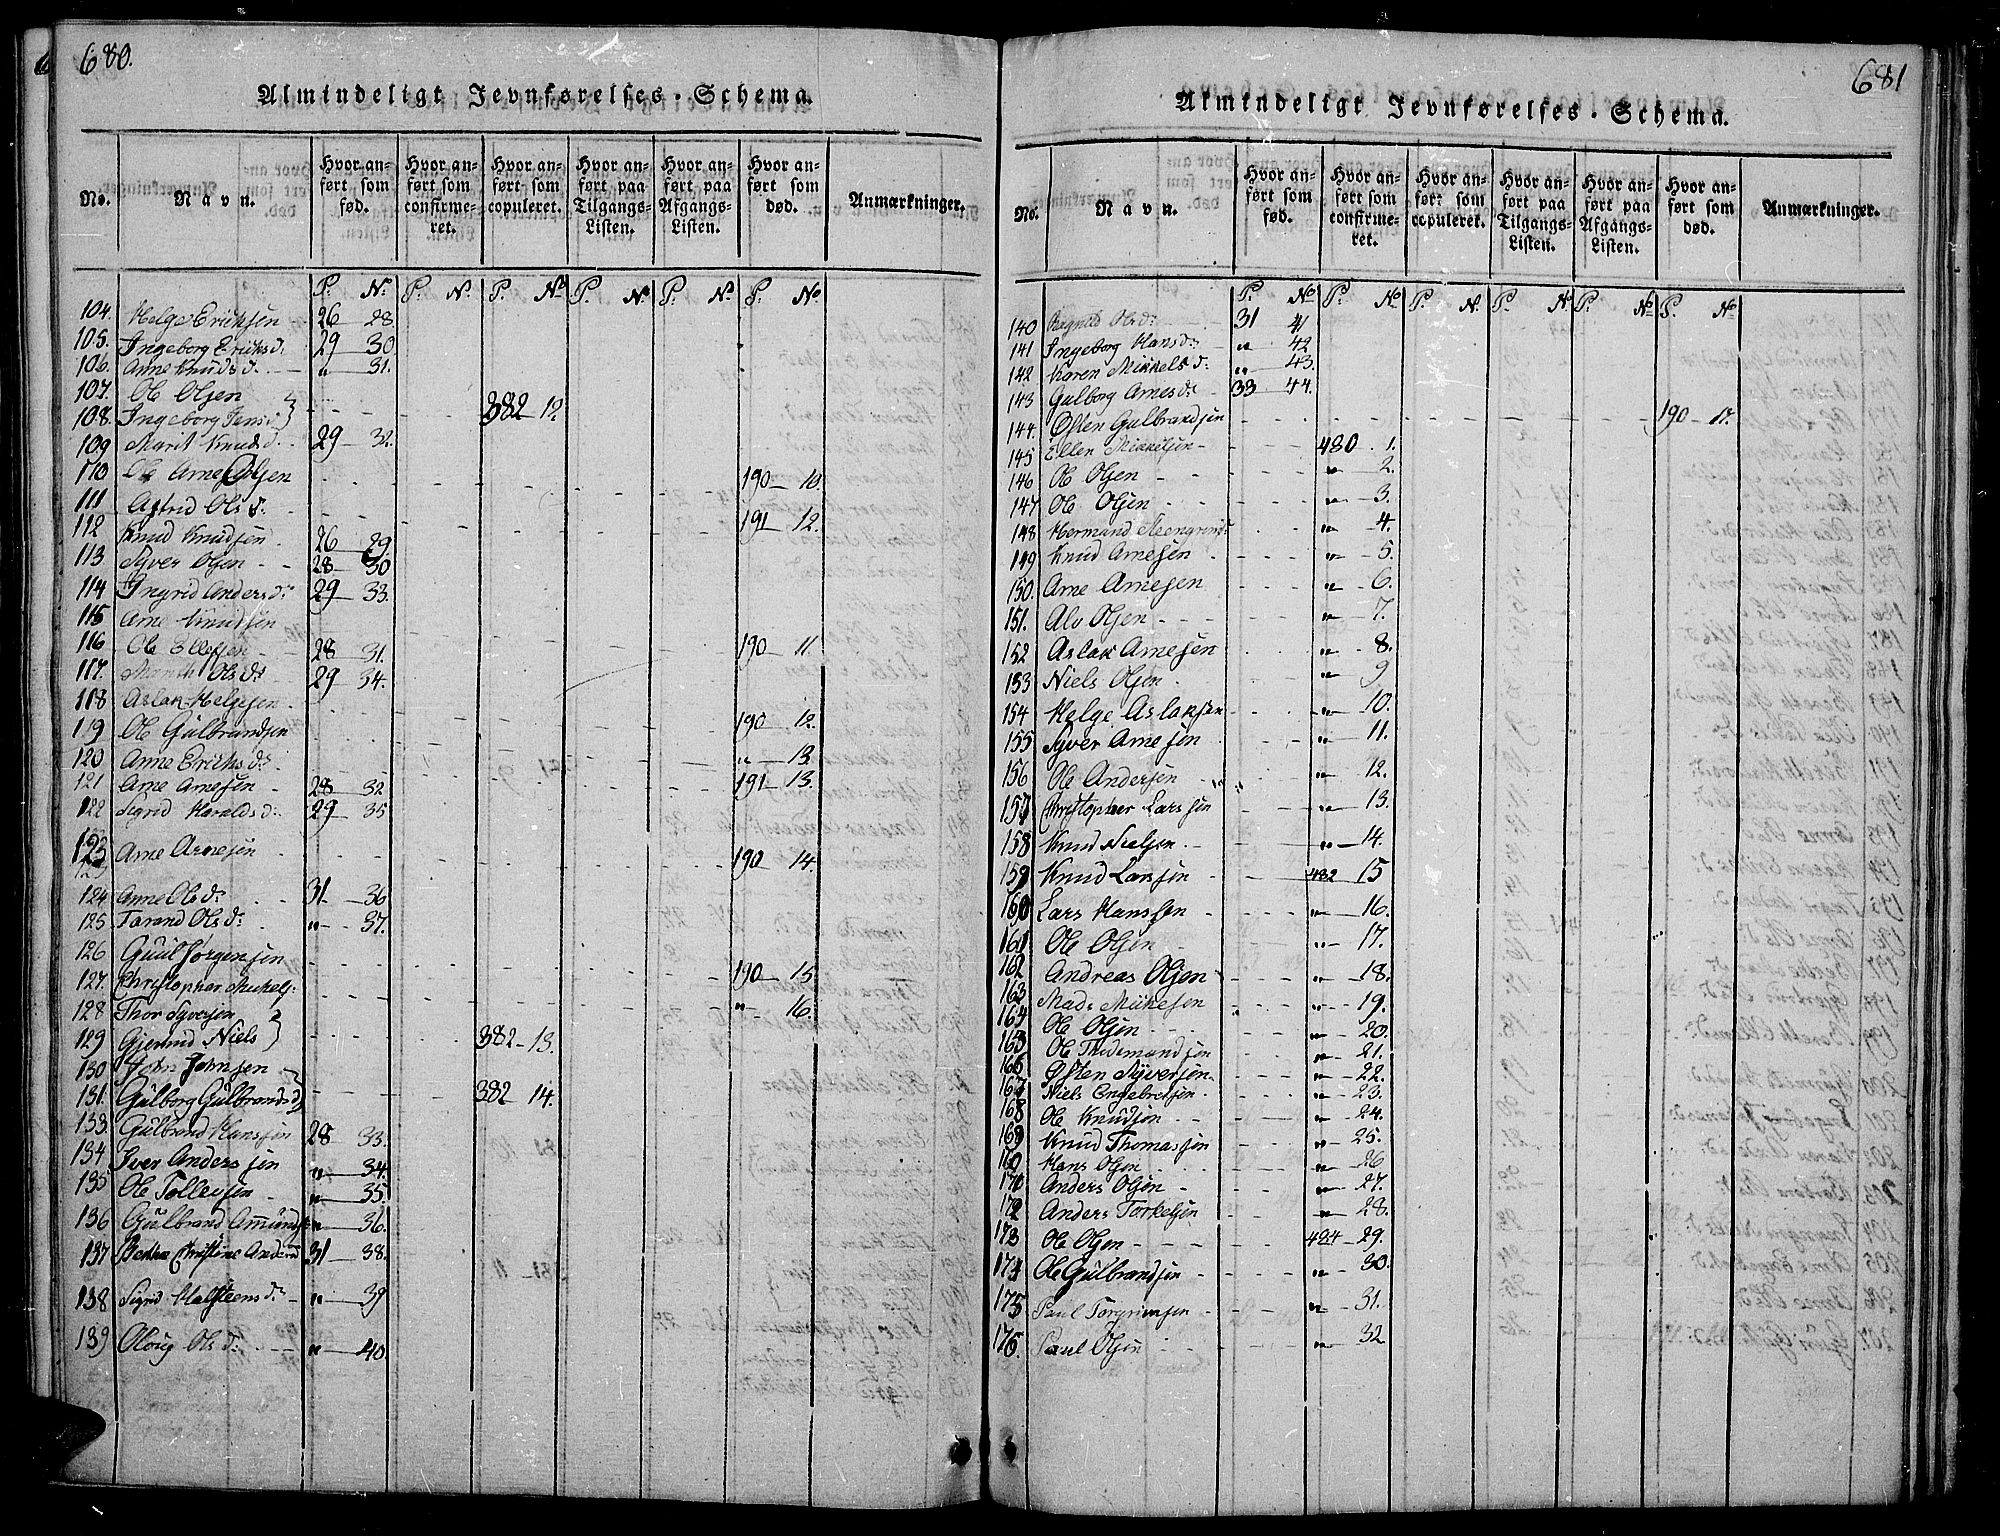 680.
Almindeligt Jevnførelses-Schema.
No. Navn. Hvor anført som fød. Hvor anført som confirmeret. Hvor anført som copuleret. Hvor anført paa Tilgangs-Listen. Hvor anført paa Afgangs-Listen. Hvor anført som død. Anmærkninger.
P. No. P. N. P. No P. No P. No P. No
104. Helge Ericksen 26 28.
105. Ingeborg Ericksd: 29 30
106. Anne Knudsd. " 31.
107. Ole Olsen
108. Ingeborg Jensd } 382 12.
109 Marit Knudsd. 29 32.
110 Ole Arne Olsen 190 10.
111 Astrid Olsd. 191 12.
112 Knud Knudsen 26 29
113 Syver Olsen 28 30
114 Ingrid Andersd: 29 33.
115 Arne Knudsen
116. Ole Ellefsen 28 31. 190 11.
117. Olsd: 29 34.
118 Aslak Helgesen
119 Ole Gulbrandsen 190 12.
120 Anne Ericksd: " 13.
121 Arne Arnesen 28 32 191 13.
122 Sigrid Haraldsd: 29 35
123 Arne Arnesen 190 14.
124 Anne Olsd: 31 36
125 Tarand Olsd: " 37.
126 Guul Jørgensen
127. Christopher Mickels. 190 15
128 Thor Syversen " 16.
129 Gjerund Niels } 382 13.
130 John Johnsen
131. Gulborg Gulbrandsd } 382 14.
133. Gulbrand Hansen 28 33.
134 Iver Andersen " 34.
135 Ole Tollevsen " 35.
136 Gulbrand Amunds " 36.
137 Christine Andersd 31 38.
138 Sigrid Halsteensd: " 39
139 Oloug Olsd: " 40.
681
Almindeligt Jevnførelses-Schema.
No. Navn. Hvor anført som fød. Hvor anført som confirmeret. Hvor anført som copuleret. Hvor anført paa Tilgangs-Listen. Hvor anført paa Afgangs-Listen. Hvor anført som død. Anmærkninger.
P. No P. No P. N. P. No P. No P. No
140 Ragnild Olsd: 31 41
141 Ingeborg Hansd: " 42
142 Karen Mikkelsd: " 43.
143 Gulborg Arnesd: 33 44.
144. Østen Gulbrandsen 190 17.
145 Ellen Mikkelsen 480 1.
146 Ole Olsen " 2.
147 Ole Olsen " 3.
148 Hermand " 4.
149 Knud Arnesen " 5.
150. Arne Arnesen " 6.
151. Alv Olsen " 7.
152 Aslak Arnesen " 8.
153 Niels Olsen " 9
154 Helge Aslaksen " 10.
155 Syver Arnesen " 11.
156 Ole Andersen " 12.
157 Christopher Larssen " 13.
158 Knud Nielsen " 14.
159 Knud Larsen 482 15
160 Lars Hanssen " 16.
161 Ole Olsen " 17.
162 Andreas Olsen " 18.
163 Mads " 19.
164 Ole Olsen " 20.
165 Ole Thidemandsen " 21.
166 Østen Syversen " 22.
167 Niels Engebretsen " 23.
168 Ole Knudsen " 24.
169 Knud Thomassen " 25.
160 Hans Olsen " 26
170 Anders Olsen " 27.
172 Anders Torkelsen " 28.
173 Ole Olsen 484 29.
174 Ole Gulbrandsen " 30.
175 Paul Torgrimsen " 31.
176. Paul Olsen " 32